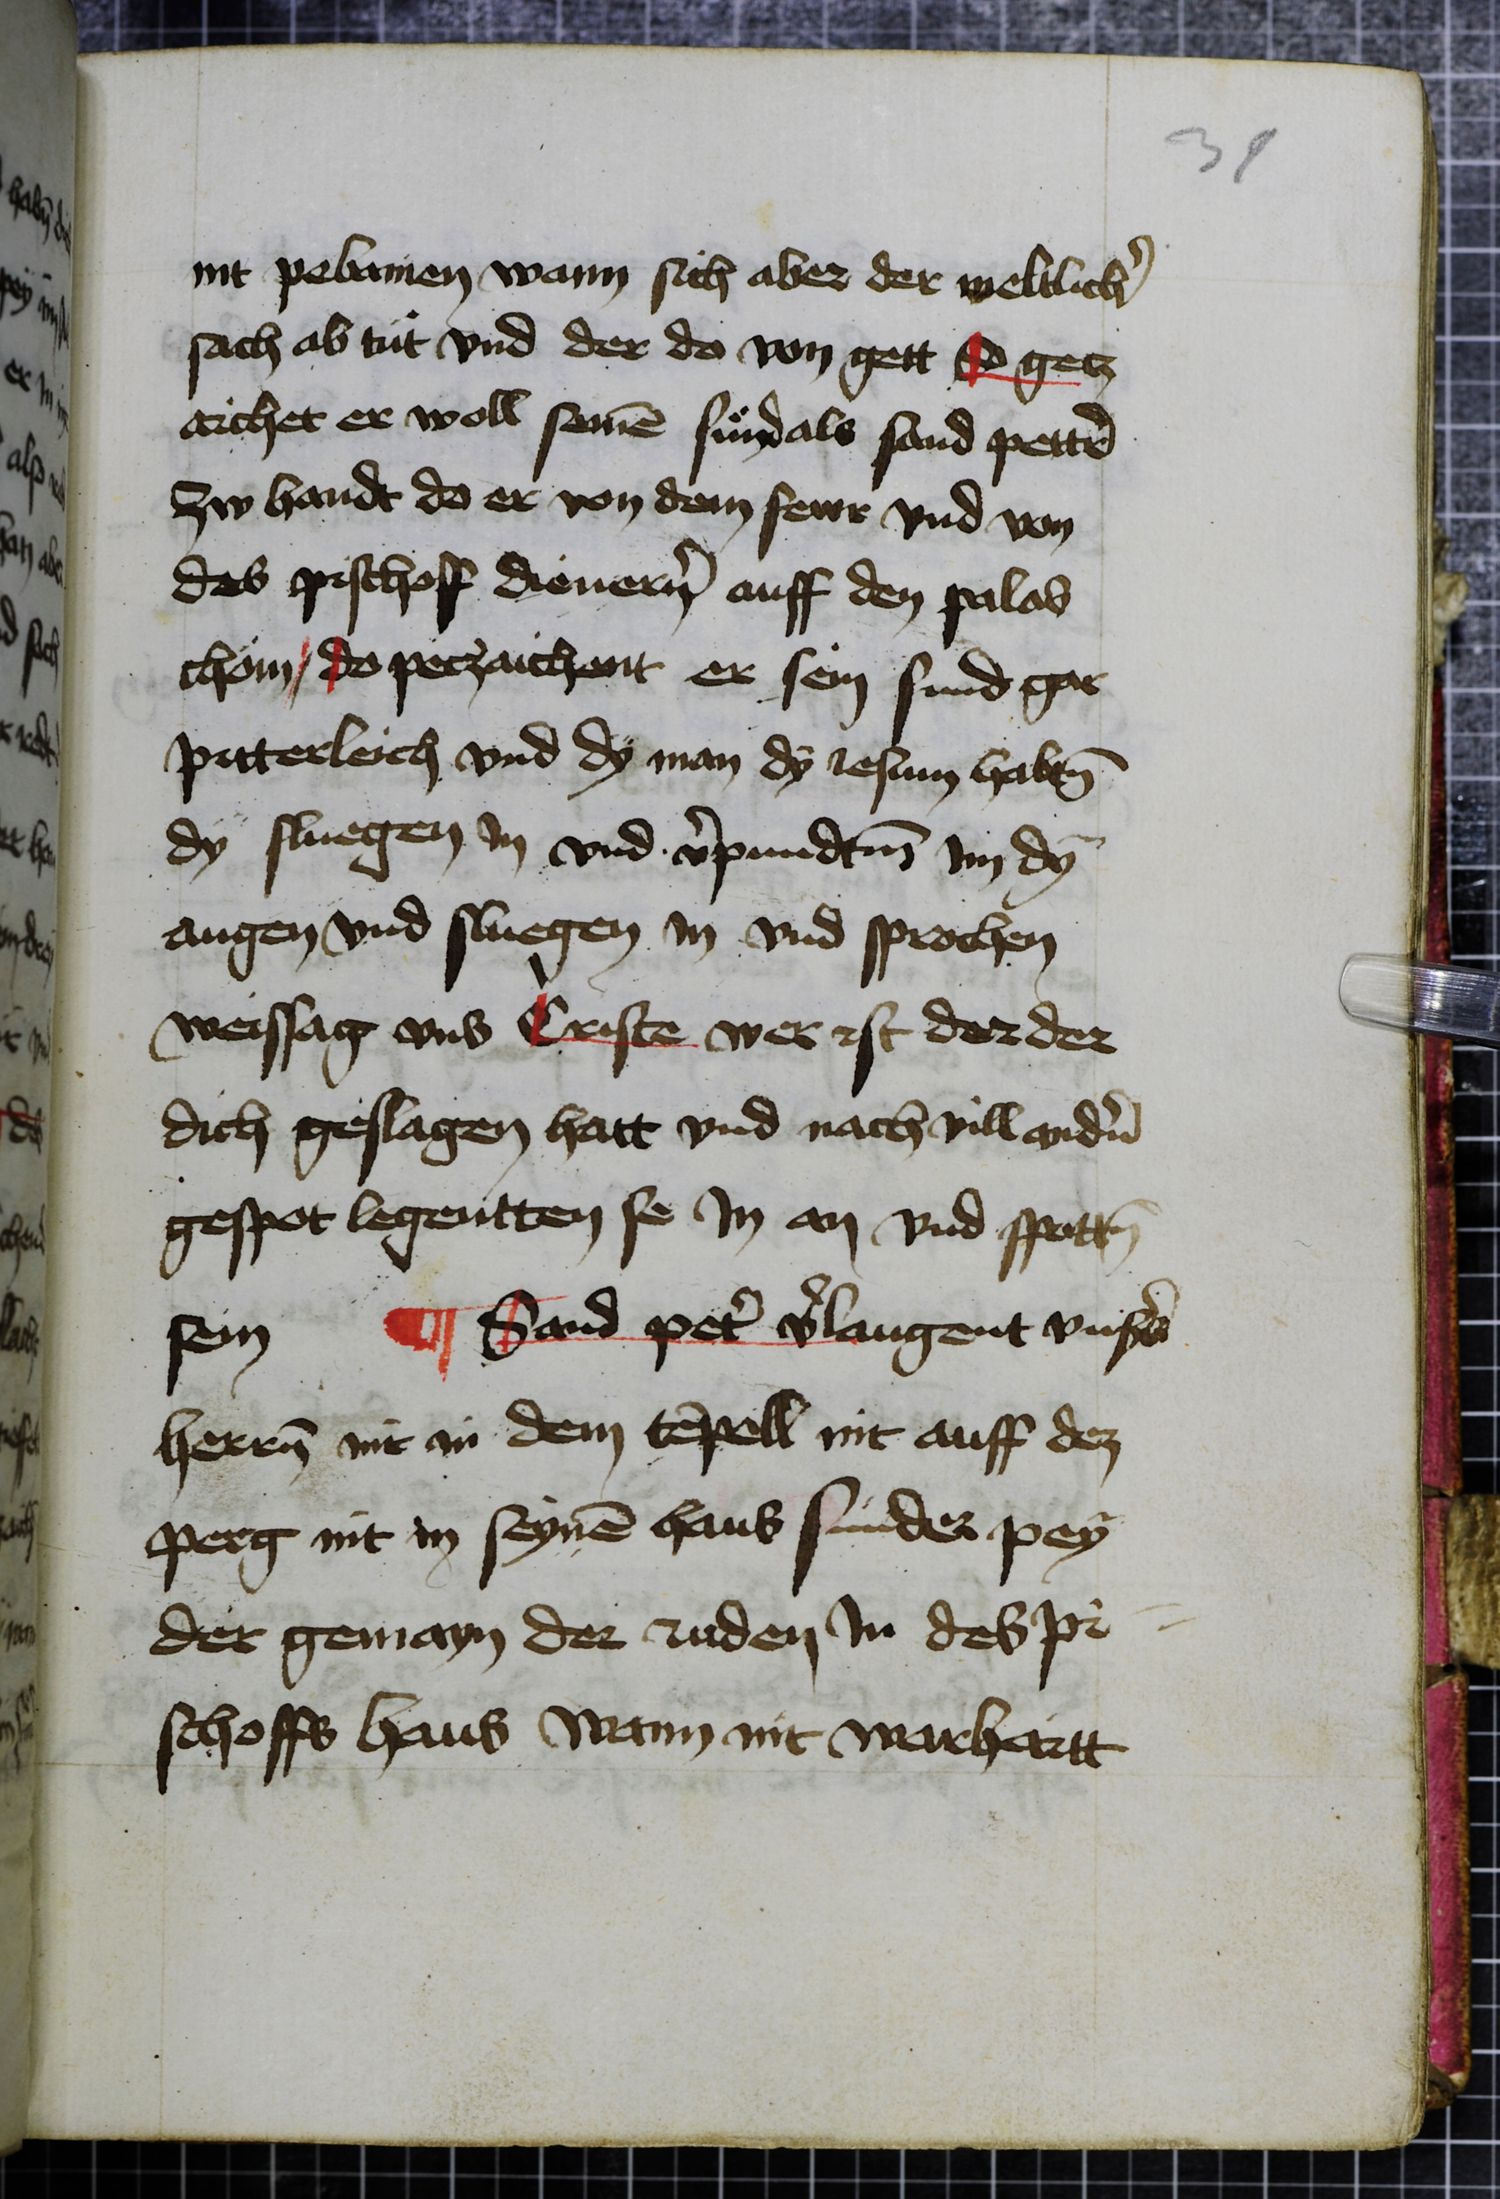 31
nit pebainen wann sich aber der weltlich̾
sach ab tut vnd der do von gett So getz
aichet er woll seinē sünd als sand pettr̾
Zw handt do er von dem fewr vnd von
des pischoff dienern̾ auff den palas
chom / do peczaichent er sein sund gar
pitterleich vnd dy man dy iesum habtn̄
dy sluegen in vnd v̾pundtn̄ im dy
augen vnd sluegen in vnd sprochen
weissag vns Criste wer ist der der
dich geslagen hatt vnd nach vill andn̾
gespot legentten se in an vnd spottn̄
sein ¶ Sand pet̾ v̾laugent vnsers
herrn̄ nit in dem tēpell nit auff dez
perg nit in seynē haus sunder pey
der gemayn der iuden in des pi
schoffs haus wann nit warhaitt